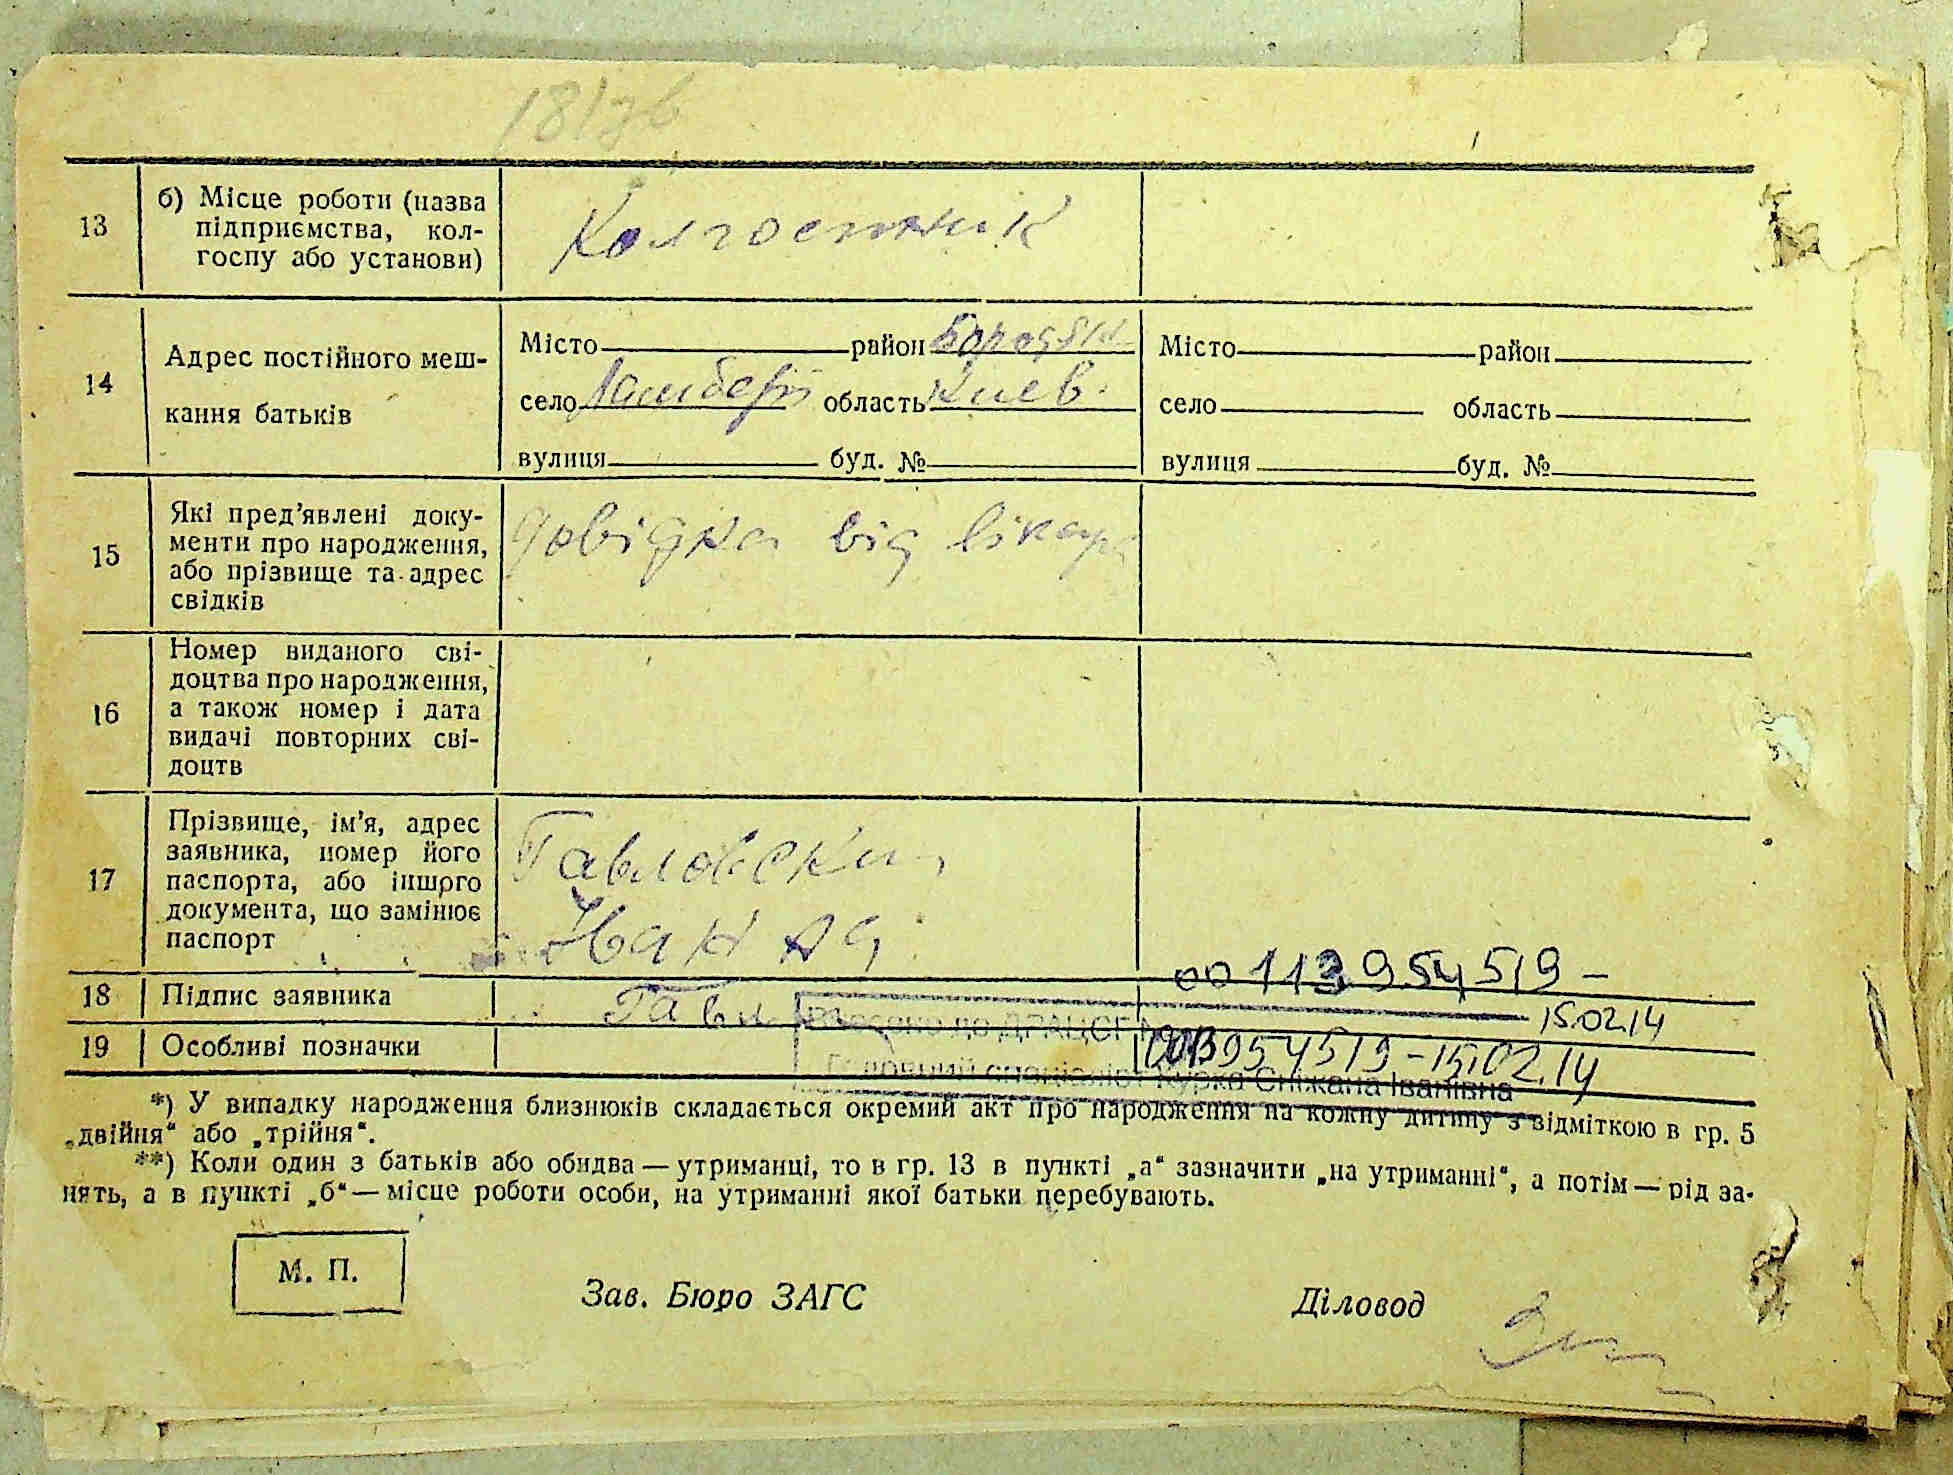 181зв
13
б) Місце роботи (назва
підприємства, кол-
госпу або установи)
Колгоспник
14
Адрес постійного меш-
кання батьків
Місто район Бородян.
село область Києв.
вулиця буд. №
Місто район
село область
вулиця буд. №
15
Які пред’явлені доку-
менти про народження,
або прізвище та адрес
свідків
Довідка від лікаря
16
Номер виданого сві-
доцтва про народження,
а також номер і дата
видачі повторних сві-
доцтв
17
Прізвище, ім’я, адрес
заявника, номер його
паспорта, або іншрго
документа, що замінює
паспорт
Павловский
Іван
00113954519 –
18
Підпис заявника
Павл
15.02.14
19
Особливі позначки
до ДРАЦСГ
00113954519 – 15.02.14
Головний спеціаліст Курка Сніжана Іванівна
*) У випадку народження близнюків складається окремий акт про народження на кожну дитину з відміткою в гр. 5
„двійня“ або „трійня“.
**) Коли один з батьків або обидва — утриманці, то в гр. 13 в пункті „а“ зазначити „на утриманні“, а потім — рід за-
нять, а в пункті „б“ — місце роботи особи, на утриманні якої батьки перебувають.
М. П.
Зав. Бюро ЗАГС
Діловод